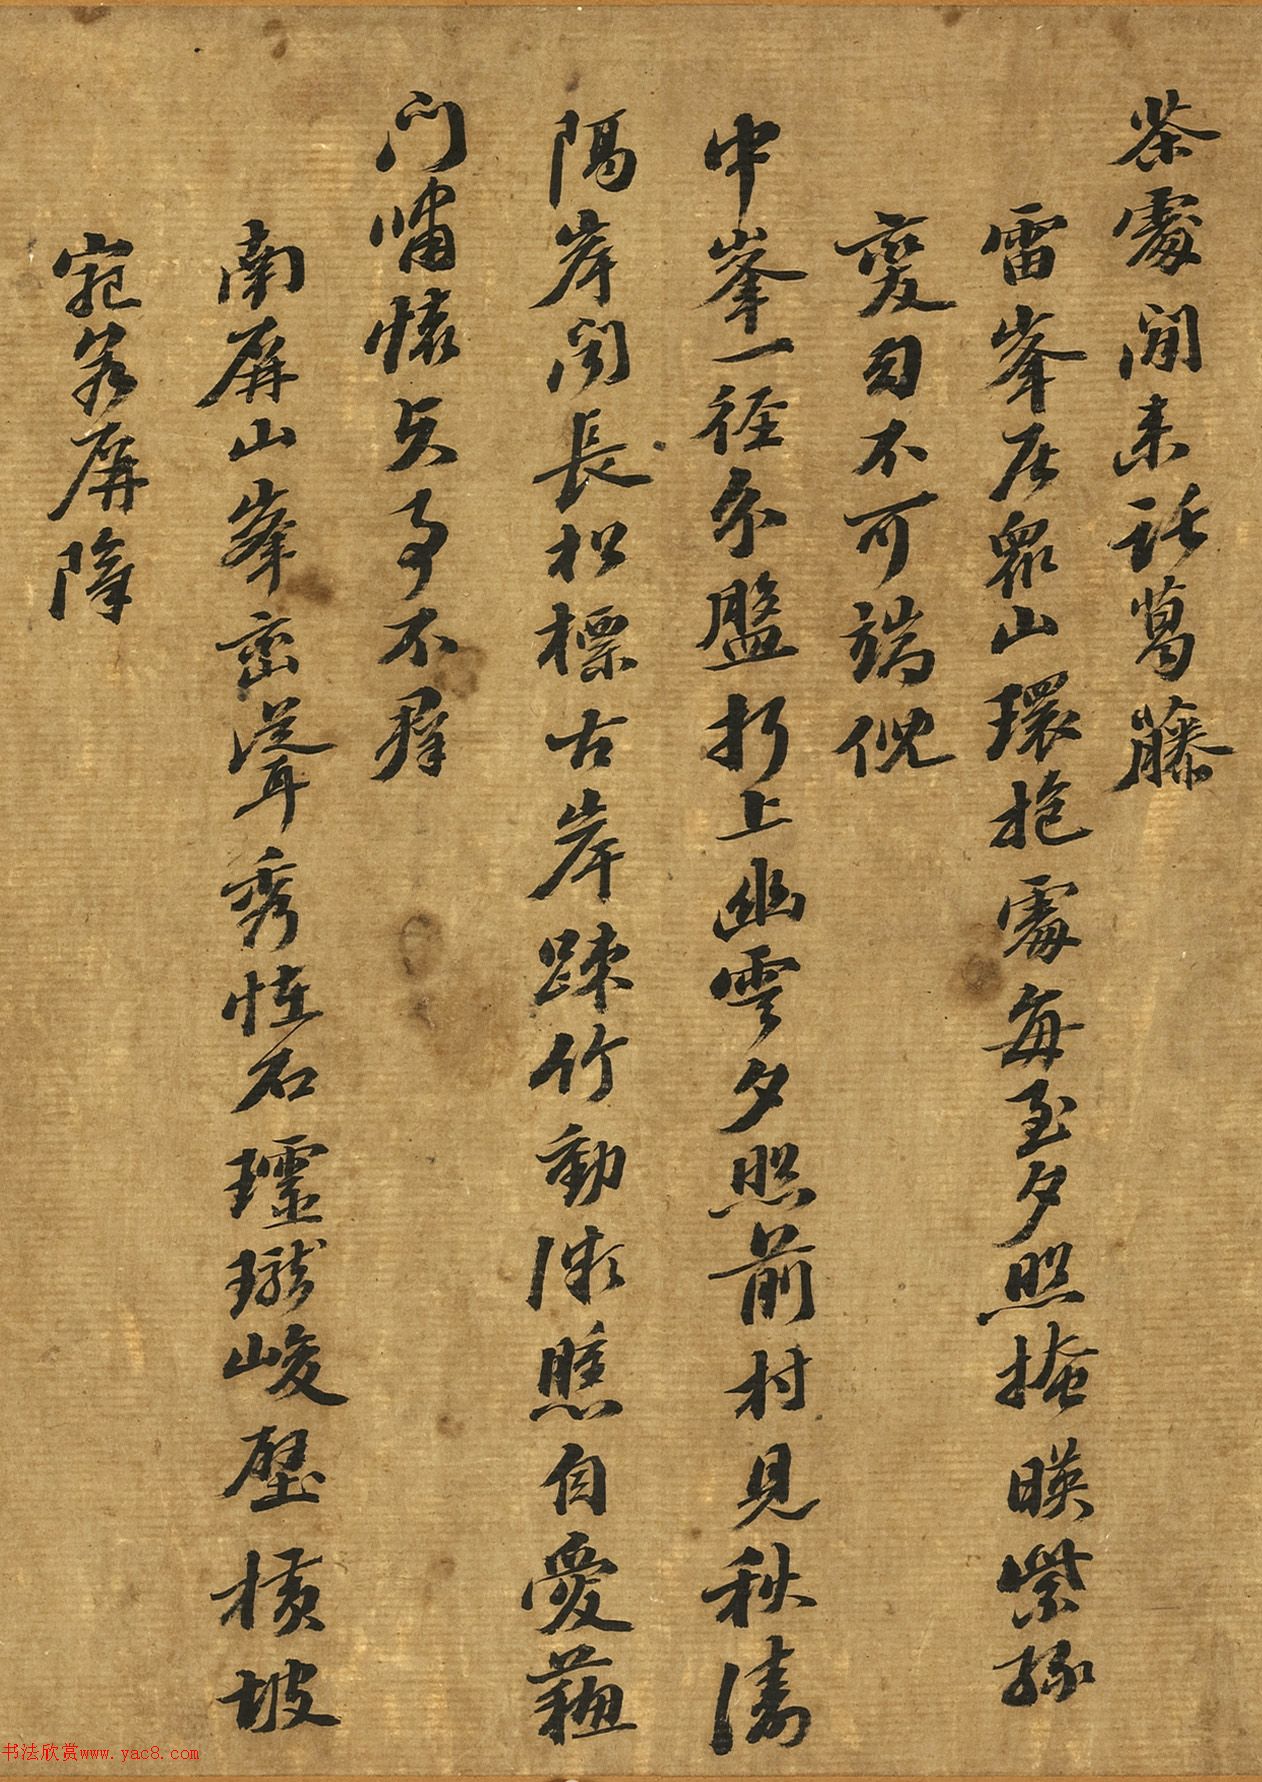 茶處閒來話葛藤
雷峯居衆山環抱處每至夕照掩暎紫綠
變幻不可端倪
中峯一徑分盤折上幽雲夕照前村見秋濤
隔岸聞長松標古岸疎竹動微曛自愛蘓
門嘯懷矣事不群
南屏山峯巒聳秀恠石瓏瓏峻壁橫坡
宛若屏障
书法欣赏www.yac8.com